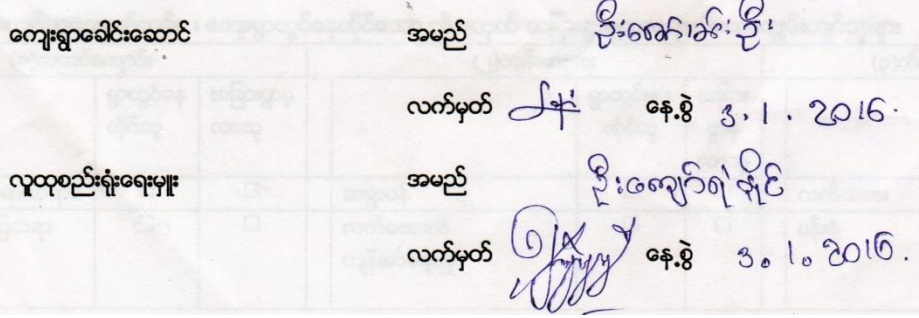 ကျေးရွာခေါင်းဆောင် အမည် ဦးအောင်ခန်းဦး
လက်မှတ် နေ့စွဲ 3.1.2016.
လူထုစည်းရုံးရေးမှူး အမည် ဦးကျော်ရဲနိုင်
လက်မှတ် နေ့စွဲ 3.1.2016.